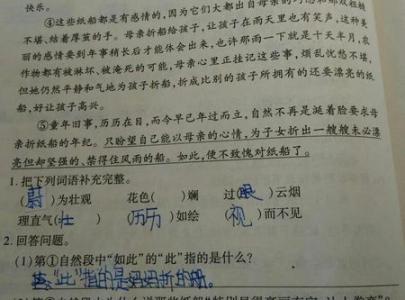 快乐。
④这些纸船都是有感情的,因为它们大都出自母亲的
不堪、结着厚茧的手。母亲折船给孩子,让孩子在雨天里也有笑声,这种美
丽的感情要到年事稍长后才能体会出来,也许那雨一下就是十天半月,农
作物都有被淋坏、被淹死的可能,母亲心里正挂记这些事,烦乱忧愁不堪,
但她仍然平静和气地为孩子折船,折成比别的孩子所拥有的还要漂亮的纸
船,好让孩子高兴。
⑤童年旧事,历历在目,而今早已年过而立,自然不再是涎着脸要求母
亲折纸船的年纪。只盼望自己能以母亲的心情,为子女折出一艘艘未必漂
亮但却坚强的、禁得住风雨的船。如此,便不致愧对纸船了。
1.把下列词语补充完整。
(蔚)为壮观 花色( )斓 过(眼)云烟
理直气(壮) (历历)如绘 (视)而不见
2.回答问题。
(1)第①自然段中“如此”的“此”指的是什么?
答:“此”指的是妈妈折的船。